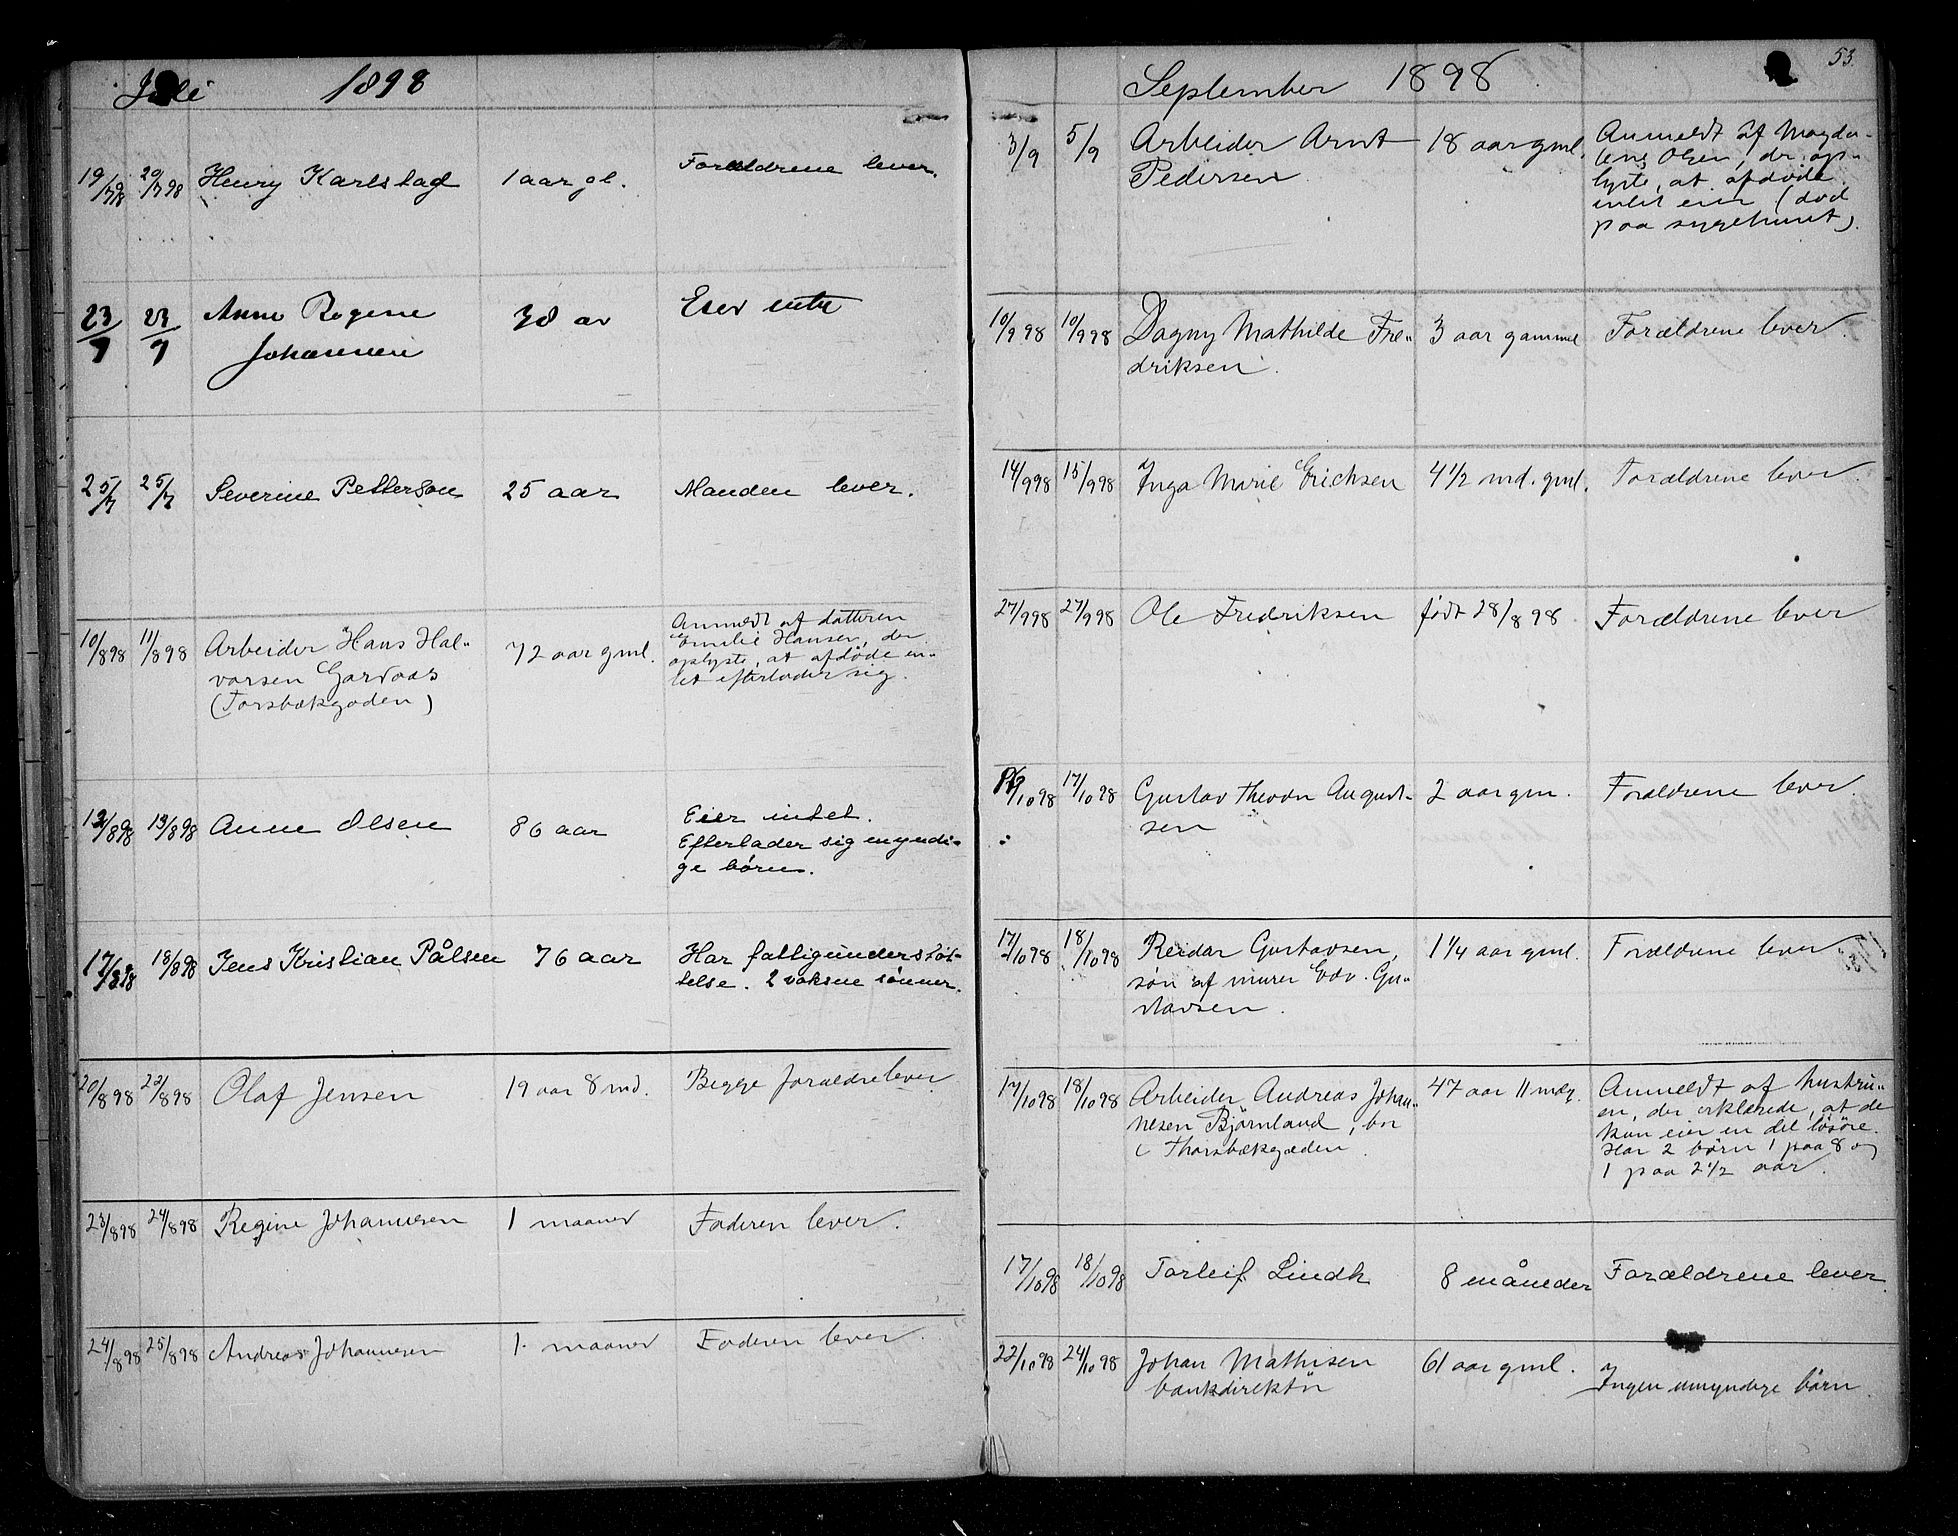 Juli 1898
19/7 98 20/7 98 Henry Karlstad 1 aar gl. Forældrene lever.
23/7 23/7 Anne Regine 38 år Eier intet
Johannesen
25/7 25/7 Severine Petterson 25 aar Manden lever.
10/8 98 11/8 98 Arbeider Hans Hal-
vorsen Gordaas
(Torsbækgaden)
72 aar gml.
Anmeldt af datteren
Emilie Hansen, der
oplyste, at afdøde in-
tet efterlader sig.
12/8 98 13/8 98 Anne Olsen 86 aar Eier intet.
Efterlader sig myndi-
ge børn.
17/8 98 18/8 98 Jens Kristian Pålsen 76 aar Har fattigunderstøt-
telse. 2 voksne sønner.
20/8 98 22/8 98 Olaf Jensen 19 aar 8 md. Begge forældre lever
23/8 98 24/8 98 Regine Johannesen 1 maaned Faderen lever.
24/8 98 25/8 98 Andreas Johannesen 1 maaned Faderen lever.
53.
September 1898
3/9 5/9 Arbeider Arnt
Pedersen
18 aar gml.
Anmeldt af Magda-
lene Olsen, der op-
lyste, at afdøde
intet eier (død
paa sygehuset).
10/9 98 10/9 98 Dagny Mathilde Fre-
driksen.
3 aar gammel Forældrene lever.
14/9 98 15/9 98 Inga Marie Erichsen 4 1/2 md. gml. Forældrene lever.
27/9 98 27/9 98 Ole Fredriksen født 28/8 98. Forældrene lever
16/10 98 17/10 98 Gustav Theodor August-
sen
2 aar gm. Forældrene lever.
17/10 98 18/10 98 Reidar Gustavsen,
søn af murer Edv. Gu-
stavsen.
1 1/4 aar gml. Forældrene lever
17/10 98 18/10 98 Arbeider Andreas Johan-
nesen Bjørnland, bor
i Thorsbækgaden.
47 aar 11 mdr.
Anmeldt af hustru-
en, der erklærede, at de
kun eier en del løsøre.
Har 2 børn 1 paa 8 og
1 paa 2 1/2 aar.
17/10 98 18/10 98 Torleif Lindh 8 måneder Forældrene lever.
22/10 98 24/10 98 Johan Mathisen
bankdirektør
61 aar gml. Ingen umyndige børn.